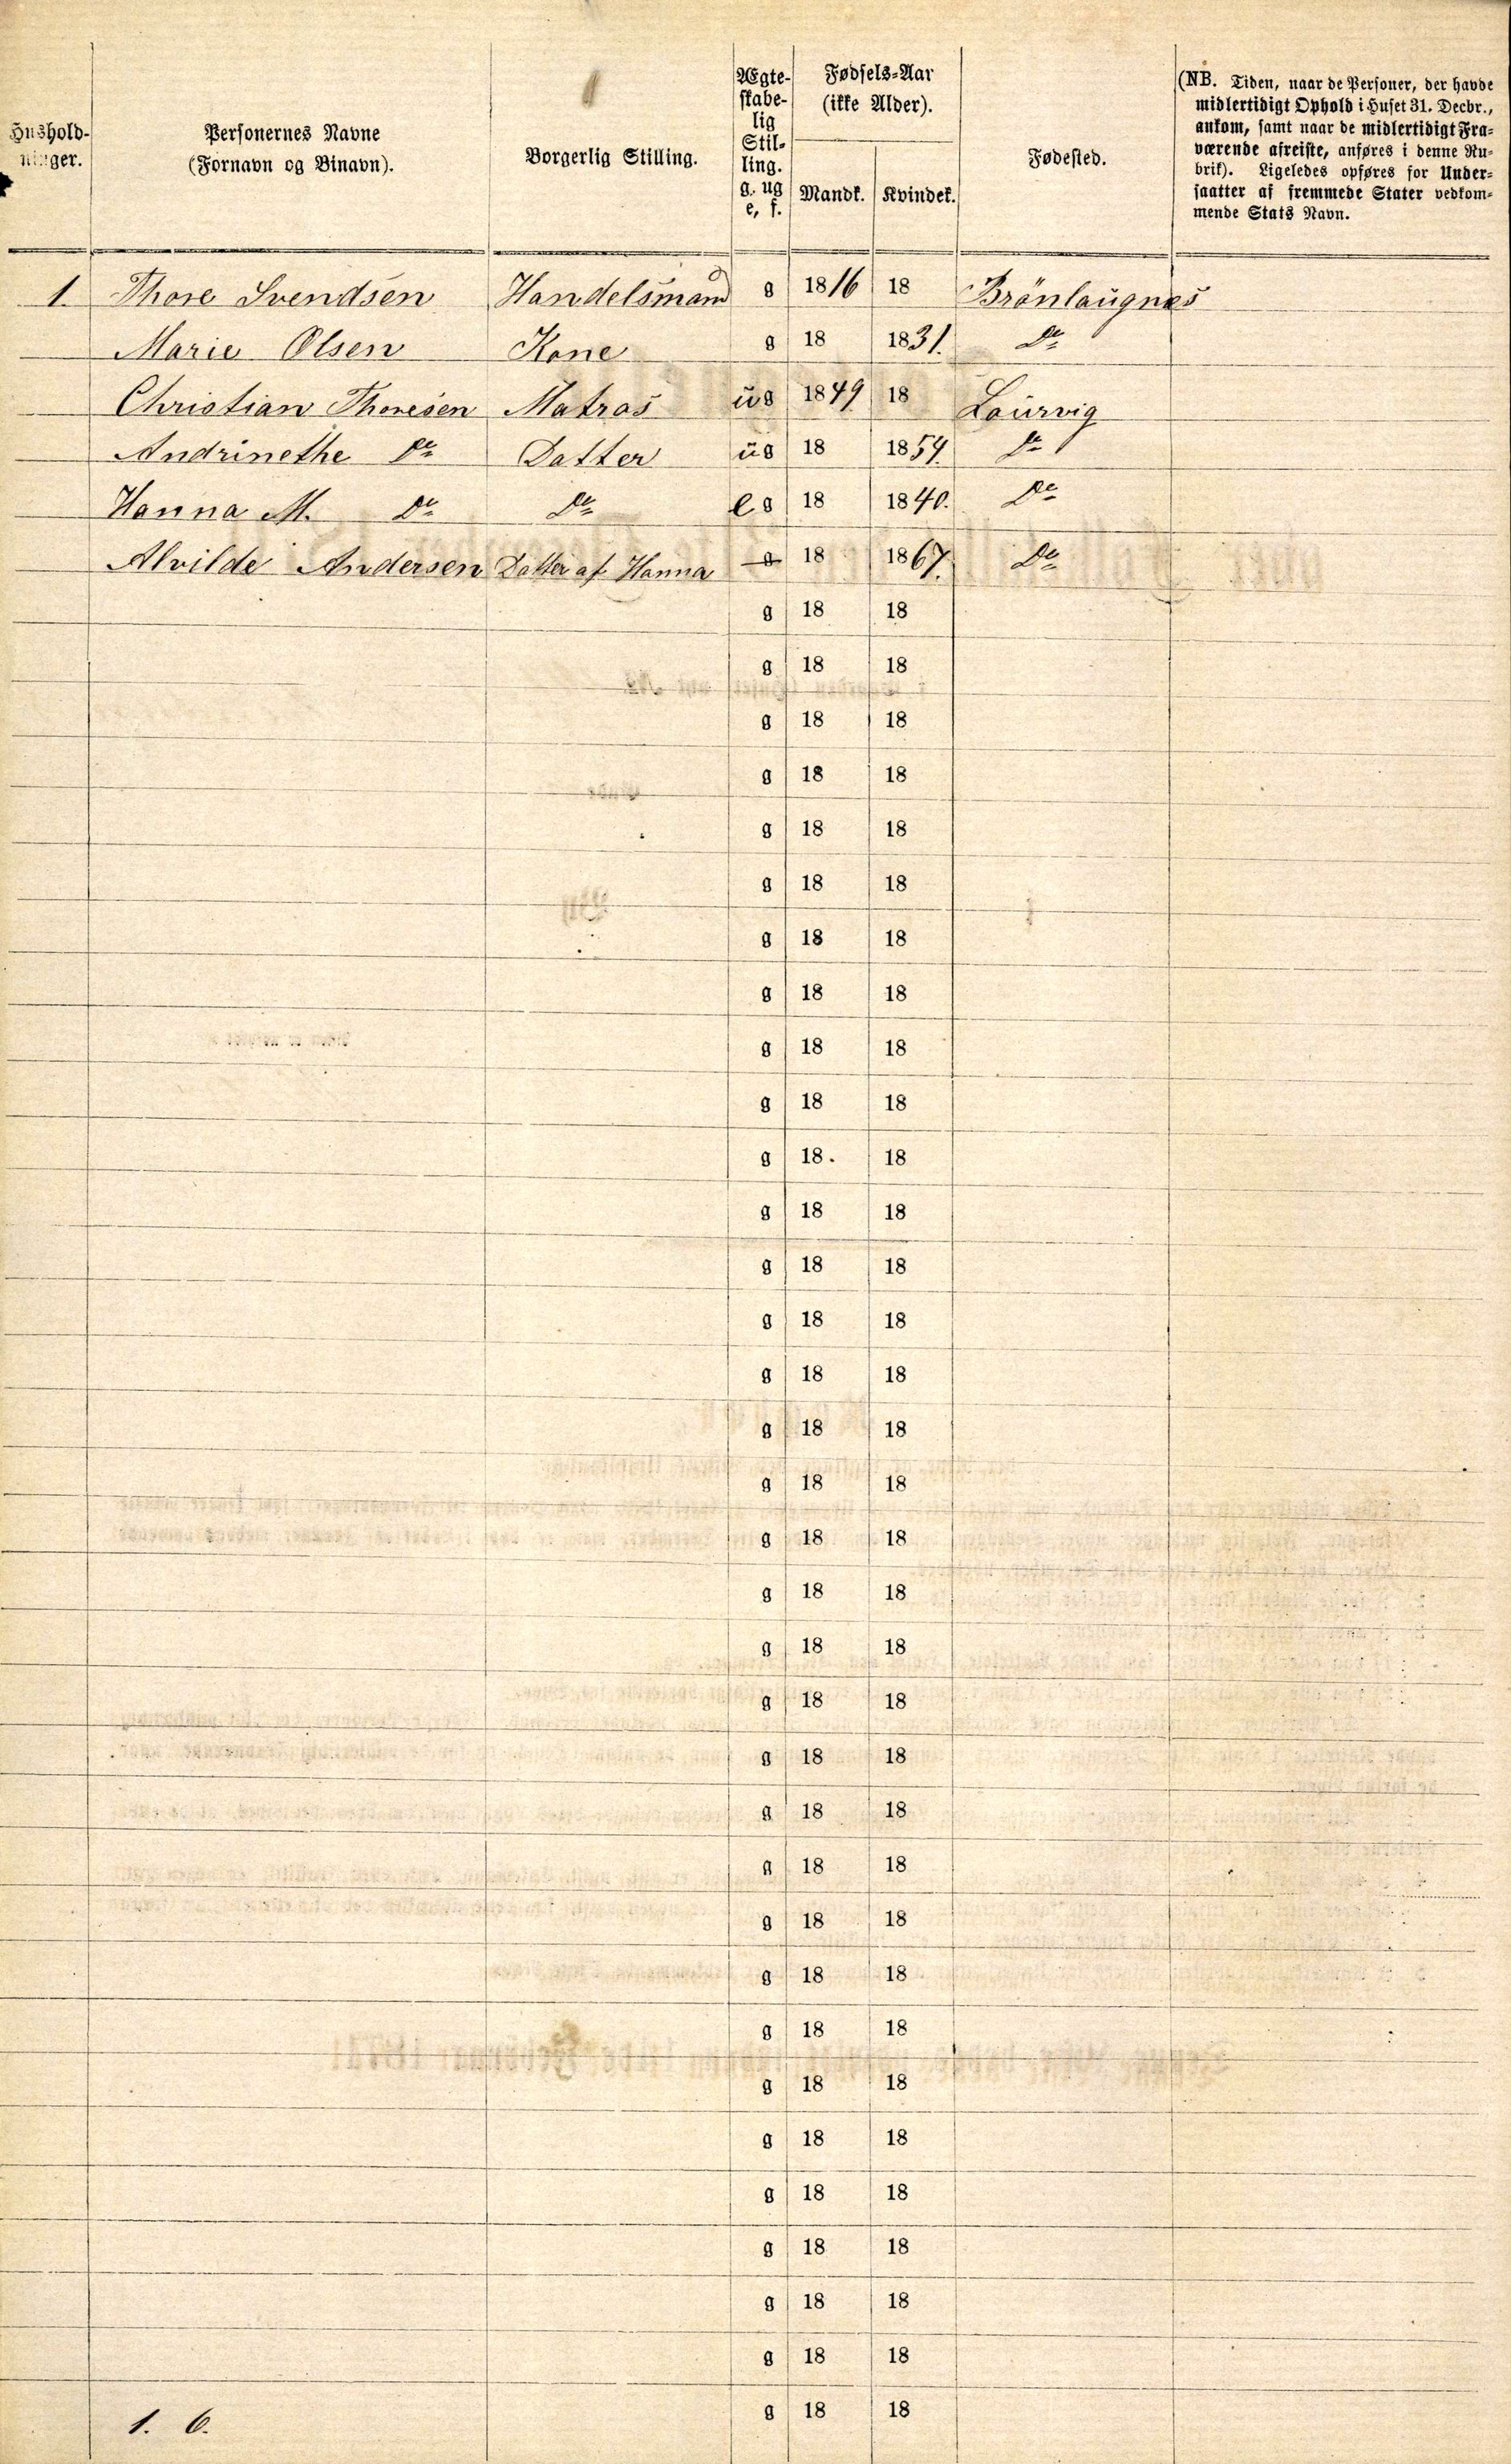 Hushold-
ninger.
Personernes Navne
(Fornavn og Binavn).
Borgerlig Stilling.
Ægte-
skabe-
lig
Stil-
ling.
g. ug
e, f.
Fødsels-Aar
(ikke Alder).
Mandk. Kvindek.
Fødested.
(NB. Tiden, naar de Personer, der havde
midlertidigt Ophold i Huset 31. Decbr.,
ankom, samt naar de midlertidigt Fra-
værende afreiste, anføres i denne Ru-
brik). Ligeledes opføres for Under-
saatter af fremmede Stater vedkom-
mende Stats Navn.
1. Thore Svendsen Handelsmand g 1816 18 Brönlaugnes
Marie Olsen Kone g 18 1831. Do
Christian Thoresen Matros ug 1849 18 Laurvig
Andrinethe Do Datter ug 18 1854. Do
Hanna M. Do Do e g 18 1840. Do
Alvilde Andersen Datter af Hanna g 18 1867. Do
g 18 18
g 18 18
g 18 18
g 18 18
g 18 18
g 18 18
g 18 18
g 18 18
g 18 18
g 18 18
g 18. 18
g 18 18
g 18 18
g 18 18
g 18 18
g 18 18
g 18 18
g 18 18
g 18 18
g 18 18
g 18 18
g 18 18
g 18 18
g 18 18
g 18 18
g 18 18
g 18 18
g 18 18
g 18 18
g 18 18
g 18 18
g 18 18
g 18 18
g 18 18
1. 6.